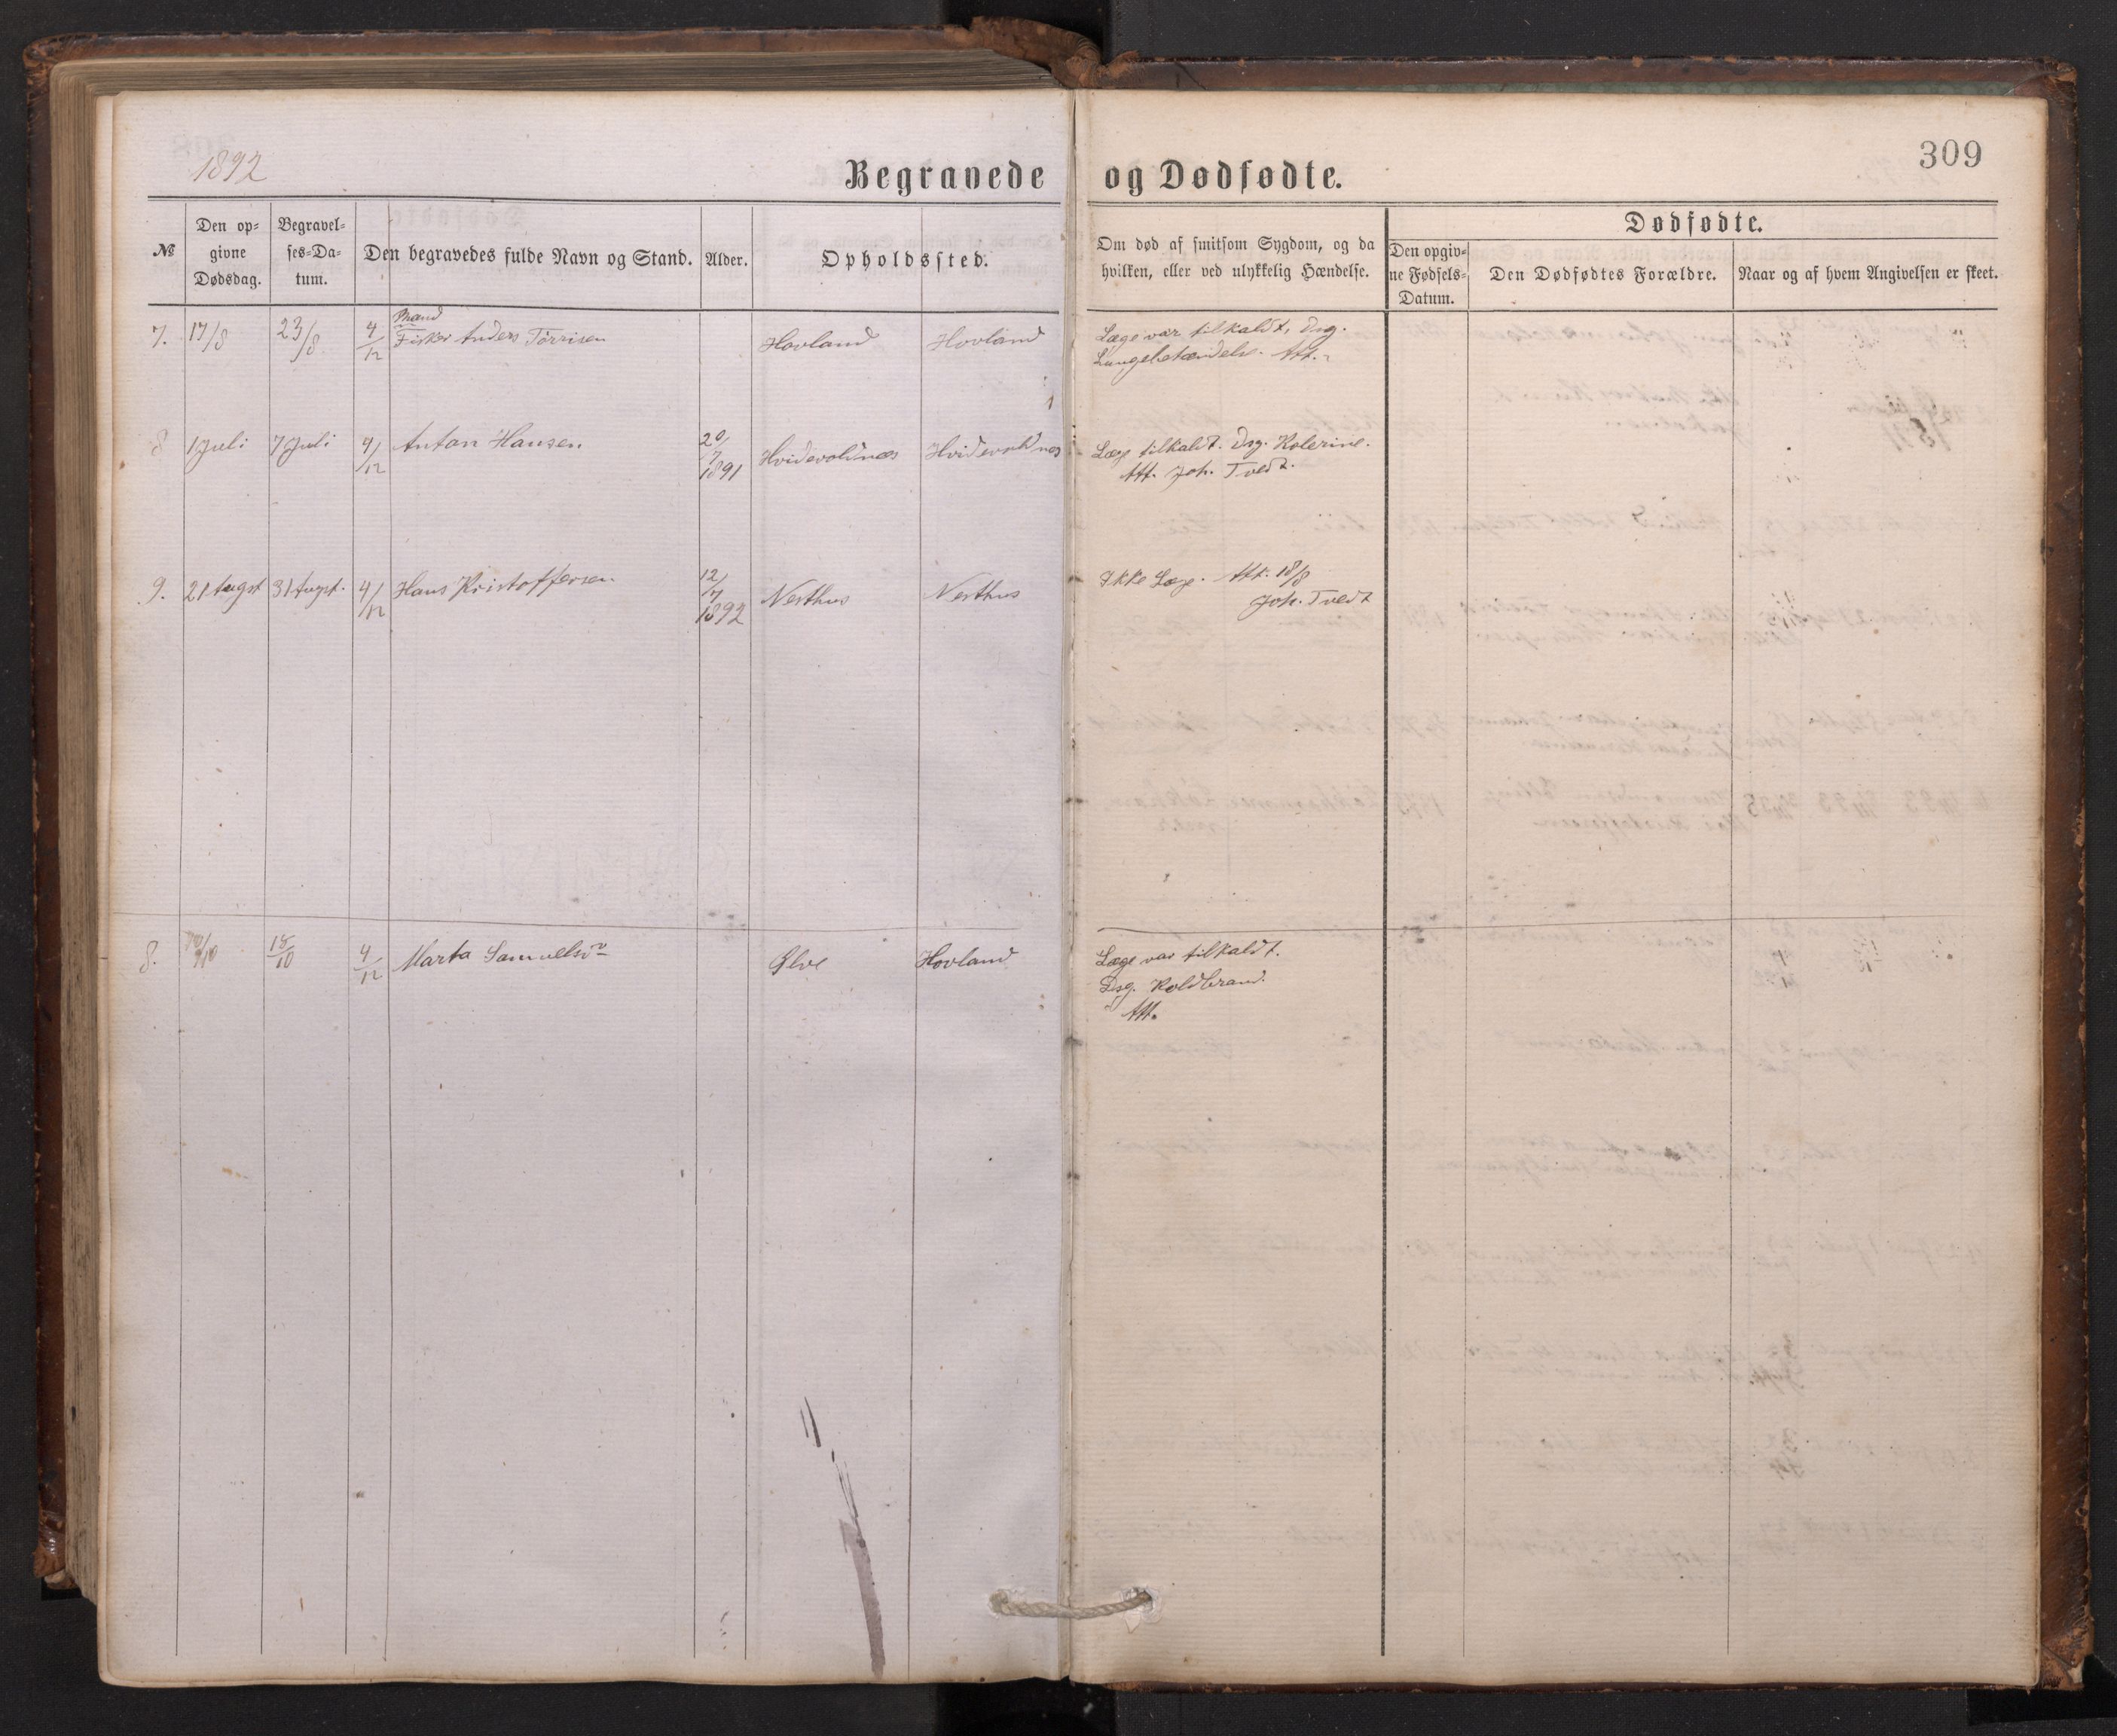 1892
309
Begravede og Dødfødte.
№
Den op-
givne
Dødsdag.
Begravel-
ses-Da-
tum.
Den begravedes fulde Navn og Stand.
Alder.
Opholdssted.
Om død af smitsom Sygdom, og da
hvilken, eller ved ulykkelig Hændelse.
Dødfødte.
Den opgiv-
ne Fødsels-
Datum.
Den Dødfødtes Forældre.
Naar og af hvem Angivelsen er skeet.
7. 17/8 23/8 4/12 Fisker Anders Tørrisen Hovland Hovland Læge var tilkaldt, Dsg.
Lungebetændelse. Att.
8 1 Juli 7 Juli 4/12 Antan Hansen 20/7 1891 Hvidevoldnæs Hvidevoldnæs Læge tilkaldt. Dsg. Kolerine.
Att. Joh. Tvedt.
9. 21 Augst 31 Augst. 4/12 Hans Kristoffersen 12/7 1892 Nerthus Nerthus Ikke Læge. Att. 18/8
Joh. Tvedt
8. 15/10 4/12 Marta Samuelsdr Ølve Hovland Læge var tilkaldt.
Dsg. Koldbrand.
Att.